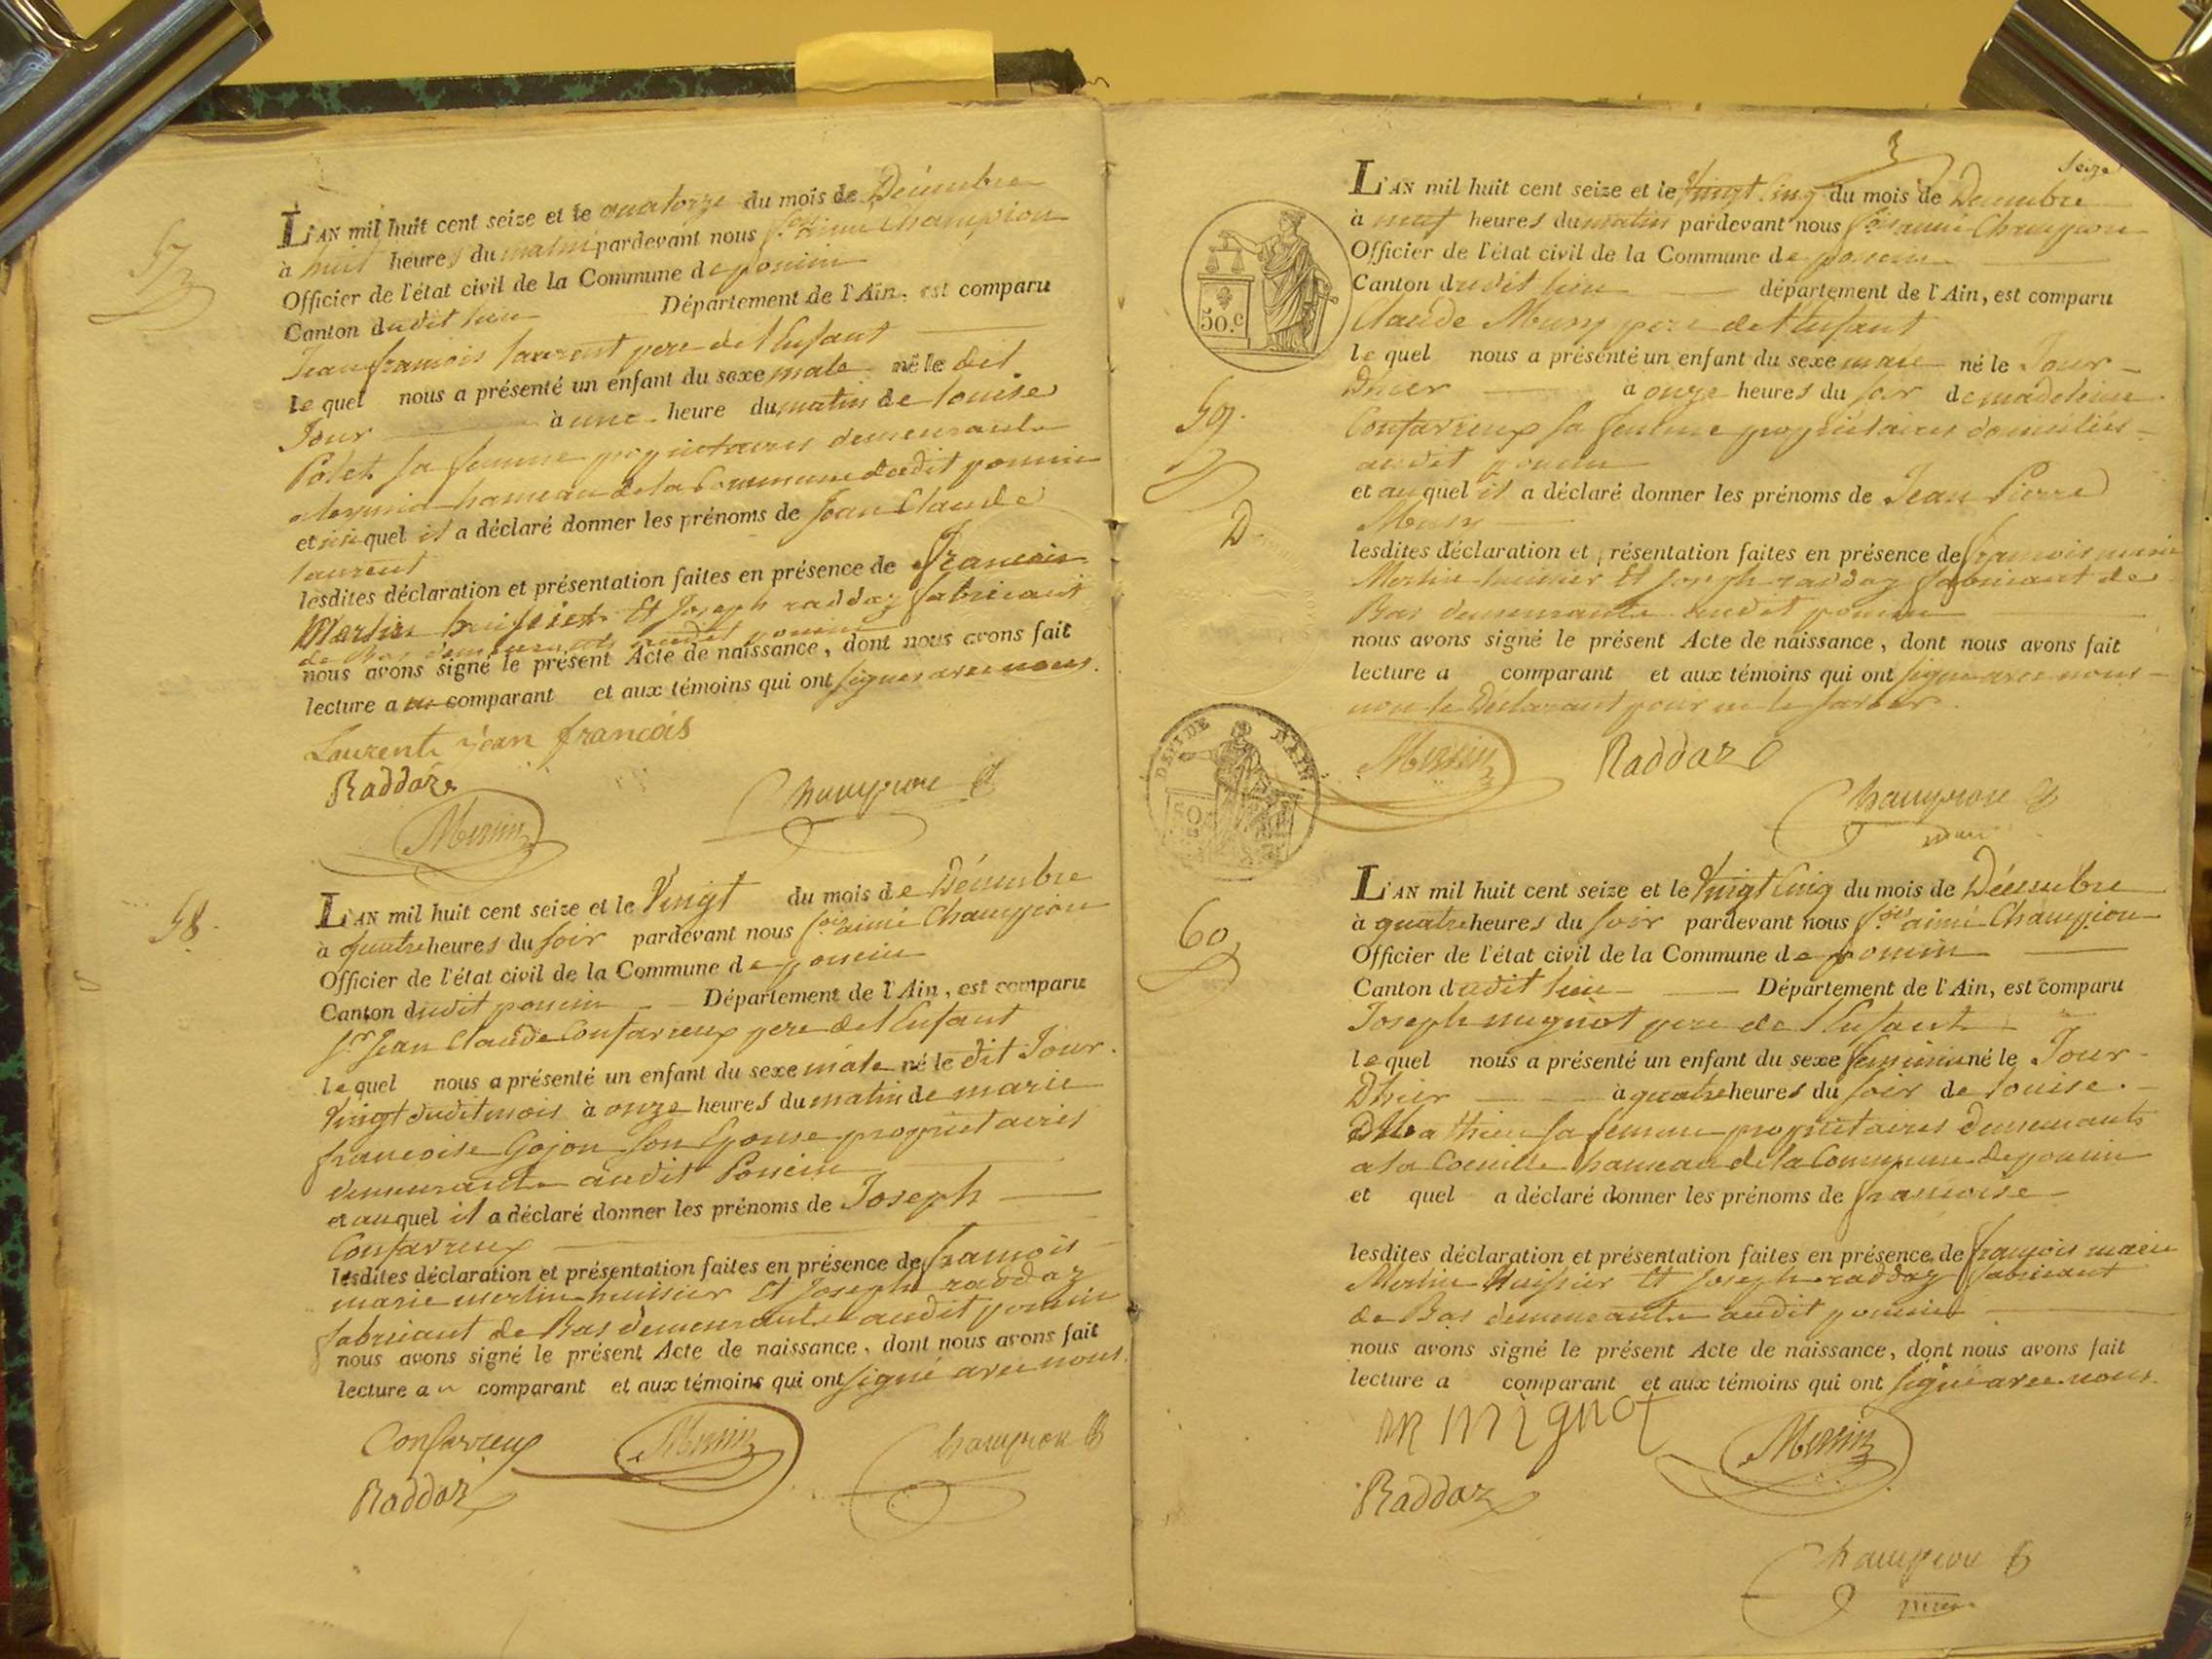 57
L'AN mil huit cent seize et le quatorze du mois de Décembre
à huit heures du matin pardevant nous f.ois aimé Champion
Officier de l'état civil de la Commune de poncin
Canton dudit lieu Département de l'Ain, est comparu
Jean françois laurent pere de l'Enfant
lequel nous a présenté un enfant du sexe male né le dit
Jour à une heure du matin de louise
Polet sa femme propriétaires demeurants
hameau de la Commune dudit poncin
et auquel il a déclaré donner les prénoms de Jean Claude
laurent
lesdites déclaration et présentation faites en présence de François
Merlin huissier Et Joseph raddaz fabricant
de Bas demeurants audit poncin
nous avons signé le présent Acte de naissance, dont nous avons fait
lecture a comparant et aux témoins qui ont signés avec nous.
Laurent jean françois
Raddaz
Merlin
Champion
58.
L'AN mil huit cent seize et le Vingt du mois de Décembre
à quatre heures du soir pardevant nous f.ois aimé Champion
Officier de l'état civil de la Commune de poncin
Canton dudit poncin Département de l'Ain, est comparu
S.r Jean Claude Confavreux pere de l'Enfant
lequel nous a présenté un enfant du sexe mâle né le dit Jour
Vingt dudit mois à onze heures du matin de marie
françoise Gojon son Epouse propriétaires
demeurants audit Poncin
et auquel il a déclaré donner les prénoms de Joseph
Confavreux
lesdites déclaration et présentation faites en présence de françois
marie merlin huissier Et Joseph raddaz
fabricant de Bas demeurants audit poncin
nous avons signé le présent Acte de naissance, dont nous avons fait
lecture au comparant et aux témoins qui ont signé avec nous.
Confavreux
Merlin
Champion
Raddaz
Seize
L'AN mil huit cent seize et le Vingt Cinq du mois de Décembre
à neuf heures du matin pardevant nous f.ois aimé Champion
Officier de l'état civil de la Commune de poncin
Canton dudit lieu département de l'Ain, est comparu
50.c
Claude Musy pere de l'Enfant
lequel nous a présenté un enfant du sexe male né le Jour
Dhier à onze heures du soir de madeleine
59.
Confavreux sa femme propriétaires domiciliés
audit poncin
et auquel il a déclaré donner les prénoms de Jean Pierre
Musy
D
lesdites déclaration et présentation faites en présence de françois marie
Merlin huissier Et Joseph raddaz fabricant de
Bas demeurants audit poncin
nous avons signé le présent Acte de naissance, dont nous avons fait
lecture a comparant et aux témoins qui ont signé avec nous
non le Déclarant pour ne le savoir.
Merlin
Raddaz
Champion
60
L'AN mil huit cent seize et le Vingt Cinq du mois de Décembre
à quatre heures du soir pardevant nous f.ois aimé Champion
Officier de l'état civil de la Commune de poncin
Canton dudit lieu Département de l'Ain, est comparu
Joseph mignot pere de l'Enfant
lequel nous a présenté un enfant du sexe feminin né le Jour
Dhier à quatre heures du soir de louise
Mathieu sa femme propriétaires demeurants
a la hameau de la Commune de poncin
et quel a déclaré donner les prénoms de françoise
lesdites déclaration et présentation faites en présence de françois marie
Merlin Huissier Et Joseph raddaz fabricant
de Bas demeurants audit poncin
nous avons signé le présent Acte de naissance, dont nous avons fait
lecture a comparant et aux témoins qui ont signé avec nous.
mignot
Merlin
Raddaz
Champion